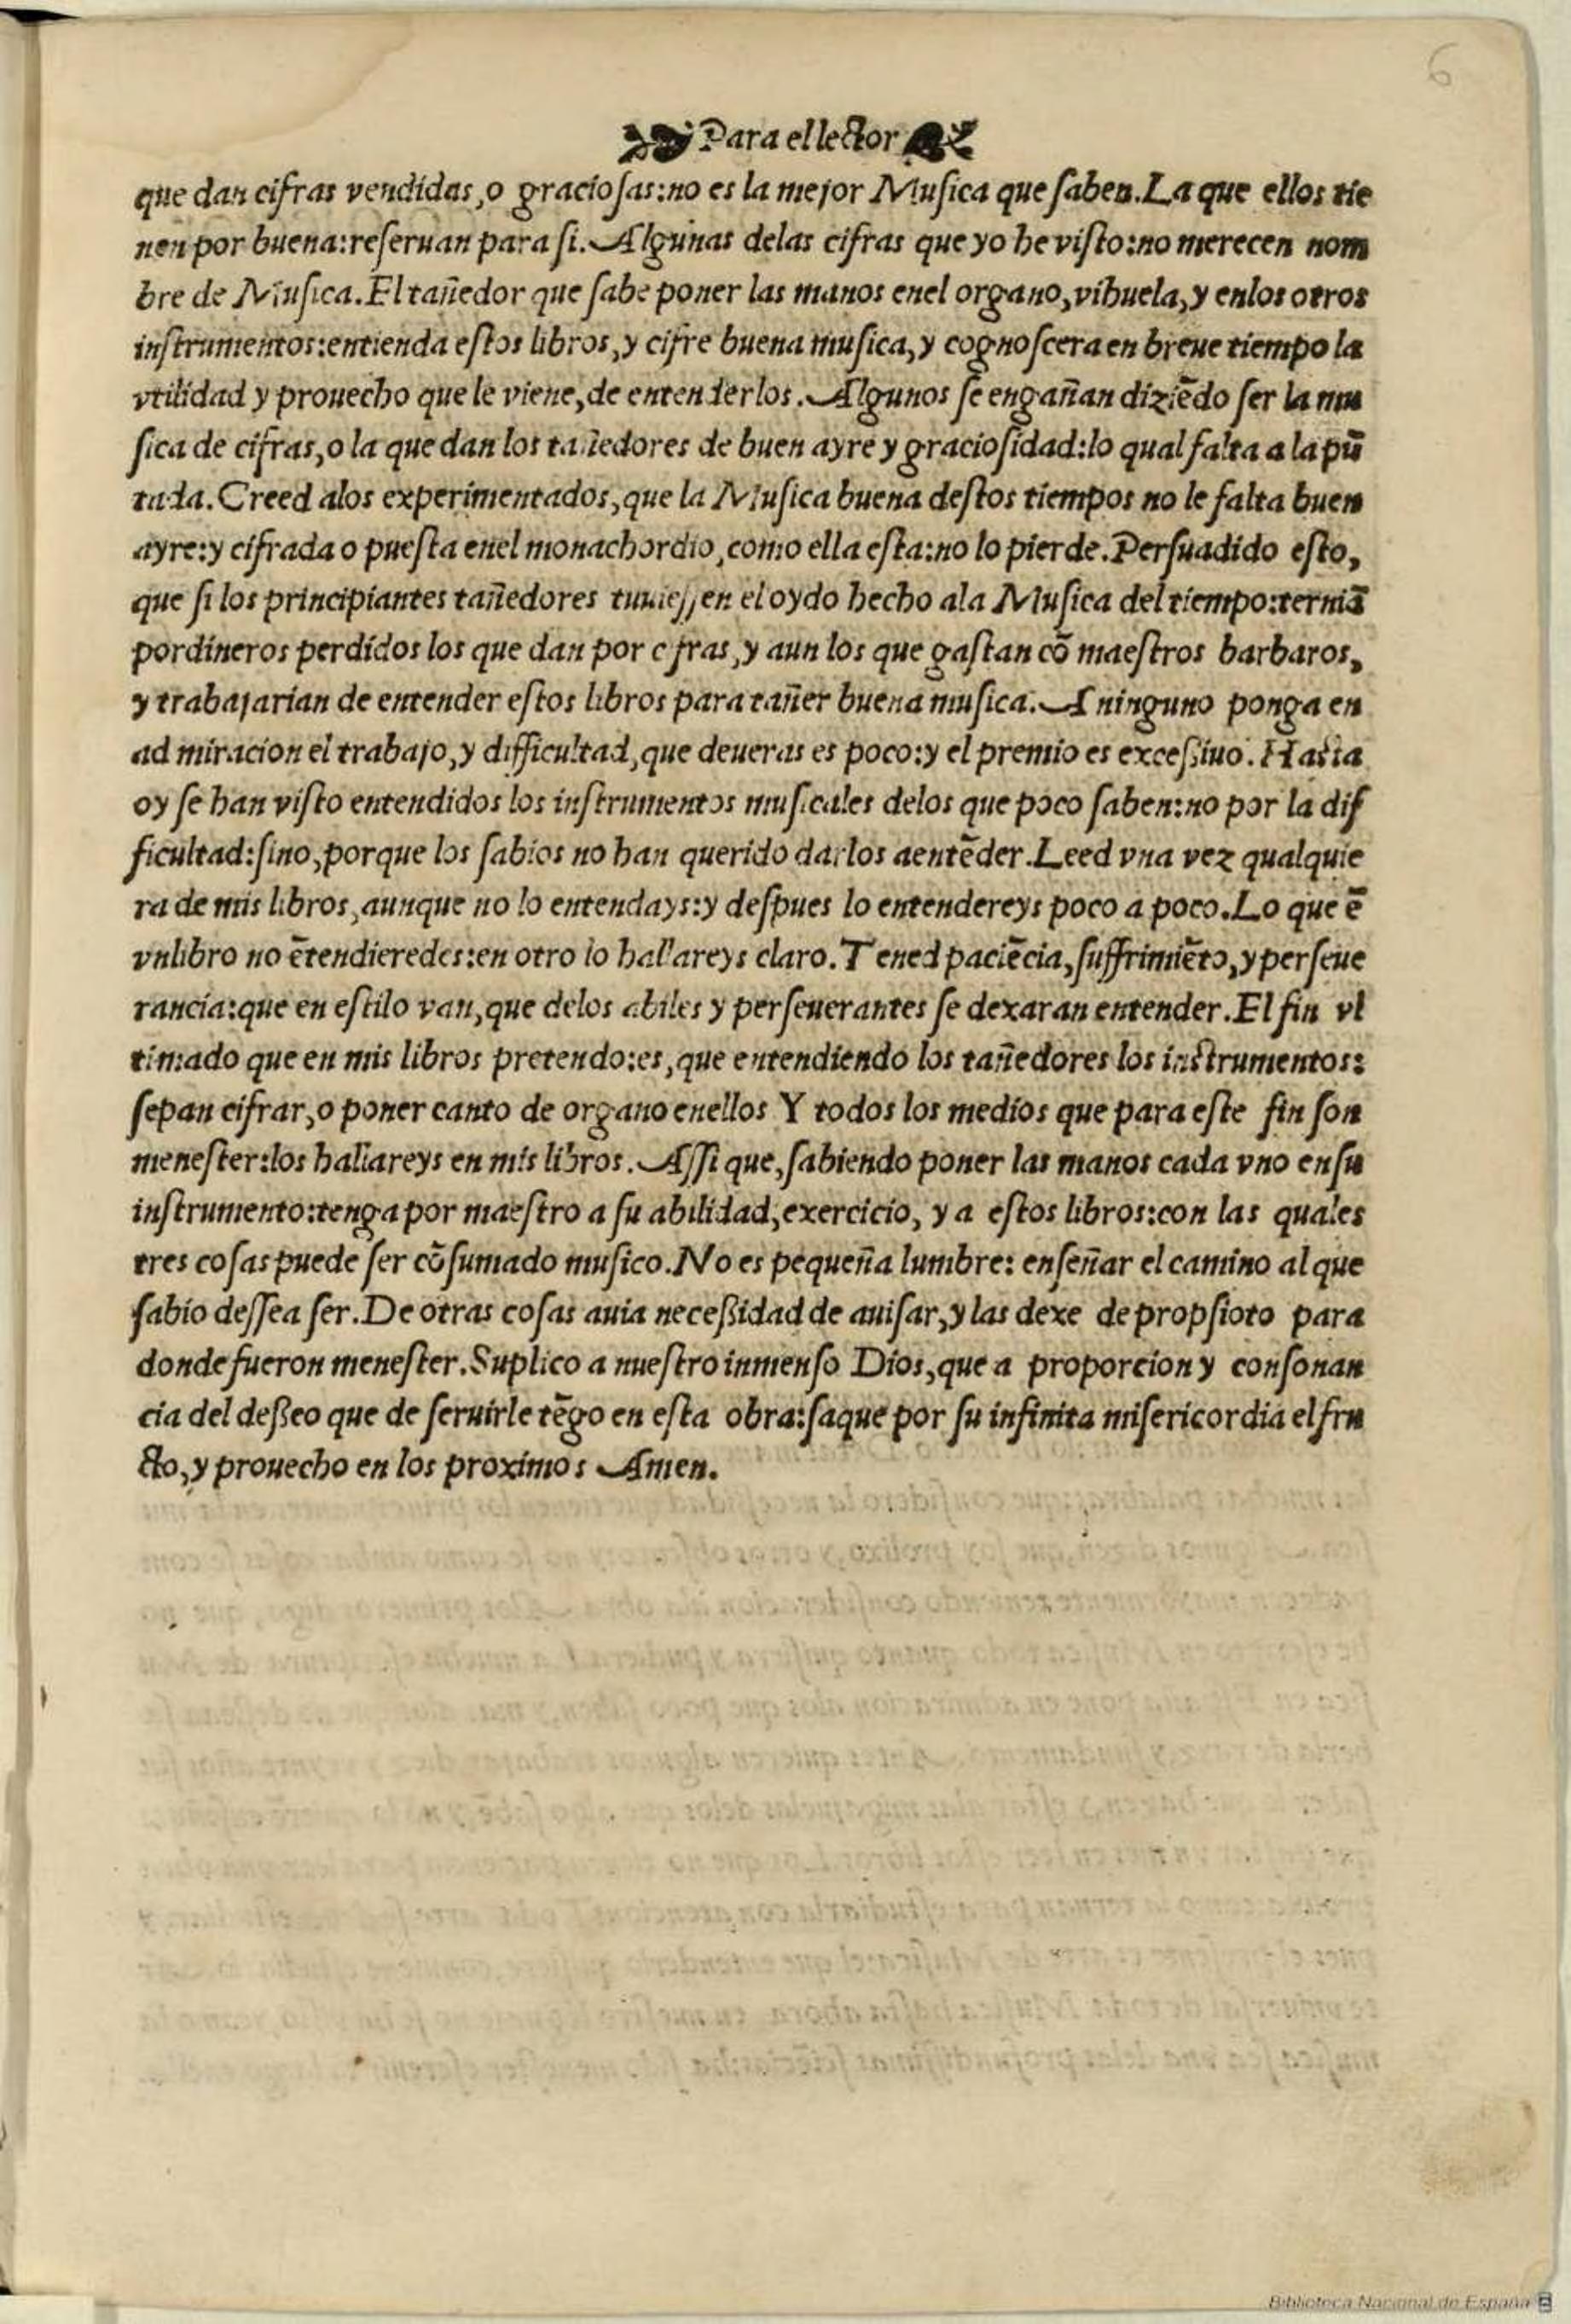 6
Para el lector
que dan cifras vendidas, o graciosas: no es la mejor Musica que saben. La que ellos tie
nen por buena: reseruan para si. Algunas delas cifras que yo he visto: no merecen nom
bre de Musica. El tañedor que sabe poner las manos enel organo, vihuela, y enlos otros
instrumentos: entienda estos libros, y cifre buena musica, y cognoscera en breue tiempo la
vtilidad y prouecho que le viene, de entenderlos. Algunos se engañan diziēdo ser la mu
sica de cifras, o la que dan los tañedores de buen ayre y graciosidad: lo qual falta a la pū
tada. Creed alos experimentados, que la Musica buena destos tiempos no le falta buen
ayre: y cifrada o puesta enel monachordio, como ella esta: no lo pierde. Persuadido esto,
que si los principiantes tañedores tuuiessen el oydo hecho ala Musica del tiempo: terniā
por dineros perdidos los que dan por cifras, y aun los que gastan cō maestros barbaros,
y trabajarian de entender estos libros para tañer buena musica. A ninguno ponga en
ad miracion el trabajo, y difficultad, que deueras es poco: y el premio es excessiuo. Hasta
oy se han visto entendidos los instrumentos musicales delos que poco saben: no por la dif
ficultad: sino, porque los sabios no han querido darlos a entēder. Leed vna vez qualquie
ra de mis libros, aunque no lo entendays: y despues lo entendereys poco a poco. Lo que ē
vn libro no ētendieredes: en otro lo hallareys claro. Tened paciēcia, suffrimiēto, y perseue
rancia: que en estilo van, que delos abiles y perseuerantes se dexaran entender. El fin vl
timado que en mis libros pretendo: es, que entendiendo los tañedores los instrumentos:
sepan cifrar, o poner canto de organo enellos Y todos los medios que para este fin son
menester: los hallareys en mis libros. Assi que, sabiendo poner las manos cada vno en su
instrumento: tenga por maestro a su abilidad, exercicio, y a estos libros: con las quales
tres cosas puede ser cōsumado musico. No es pequeña lumbre: enseñar el camino al que
sabio dessea ser. De otras cosas auia necessidad de auisar, y las dexe de propsioto para
donde fueron menester. Suplico a nuestro inmenso Dios, que a proporcion y consonan
cia del desseo que de seruirle tēgo en esta obra: saque por su infinita misericordia el fru
cto, y prouecho en los proximos Amen.
Biblioteca Nacional de España